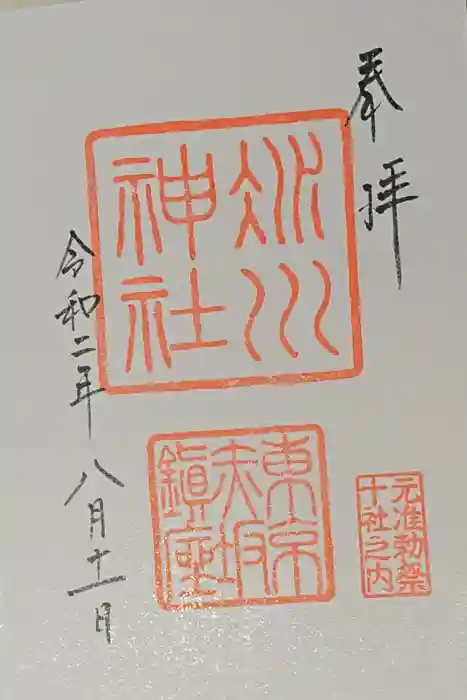 奉拝
氷川
神社
東京
赤坂
鎮座
元准勅祭
十社之内
令和二年
八月十一日